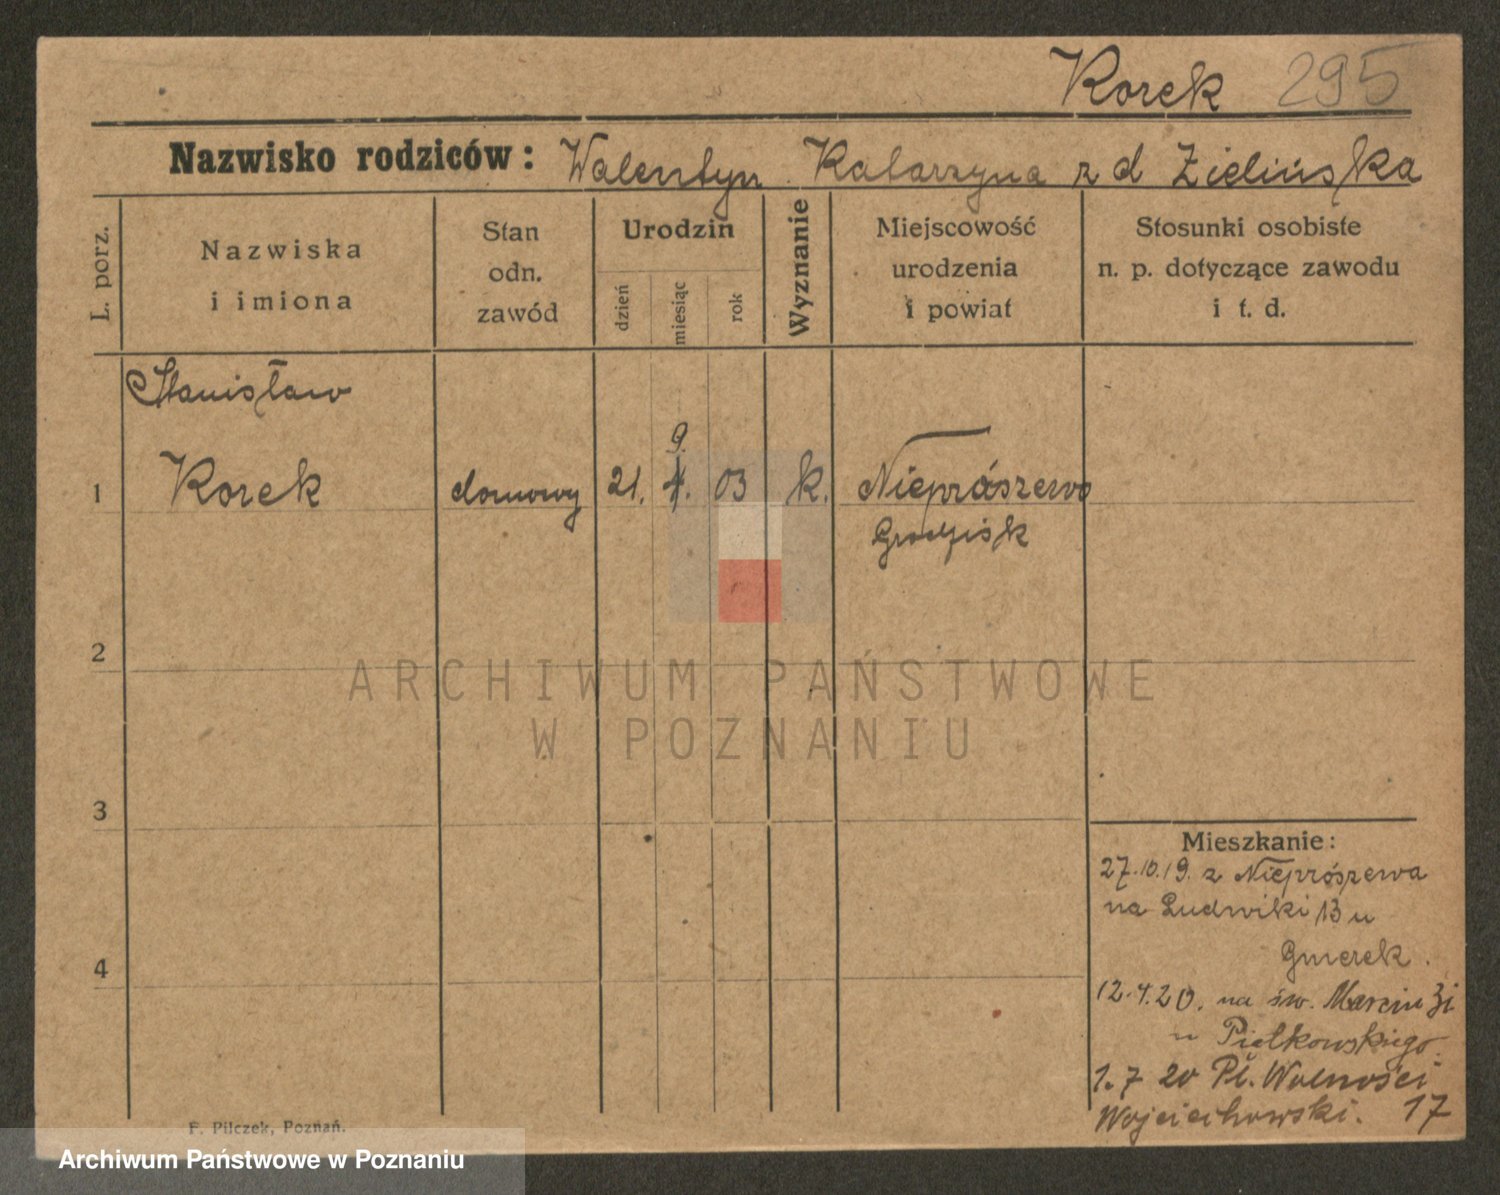 Korek 295
Nazwisko rodziców: Walentyn Katarzyna z d Zielińska
L. porz.
Nazwiska
i imiona
Stan
odn.
zawód
Urodzin
dzień
miesiąc
rok
Wyznanie
Miejscowość
urodzenia
i powiat
Stosunki osobiste
n. p. dotyczące zawodu
i t. d.
Stanisław
9.
1 Korek domowy 21. 4. 03 k. Niepruszewo
Grodzisk
2
ARCHIWUM PAŃSTWOWE
W POZNANIU
3
Mieszkanie:
27.10.19. z Niepruszewa
na Ludwiki 13 u
Gmerek.
4
12.4.20. na św. Marcin
u Piełkowskiego.
1.7 20 Pl. Wolności
Wojciechowski. 17
F. Pilczek, Poznań.
Archiwum Państwowe w Poznaniu